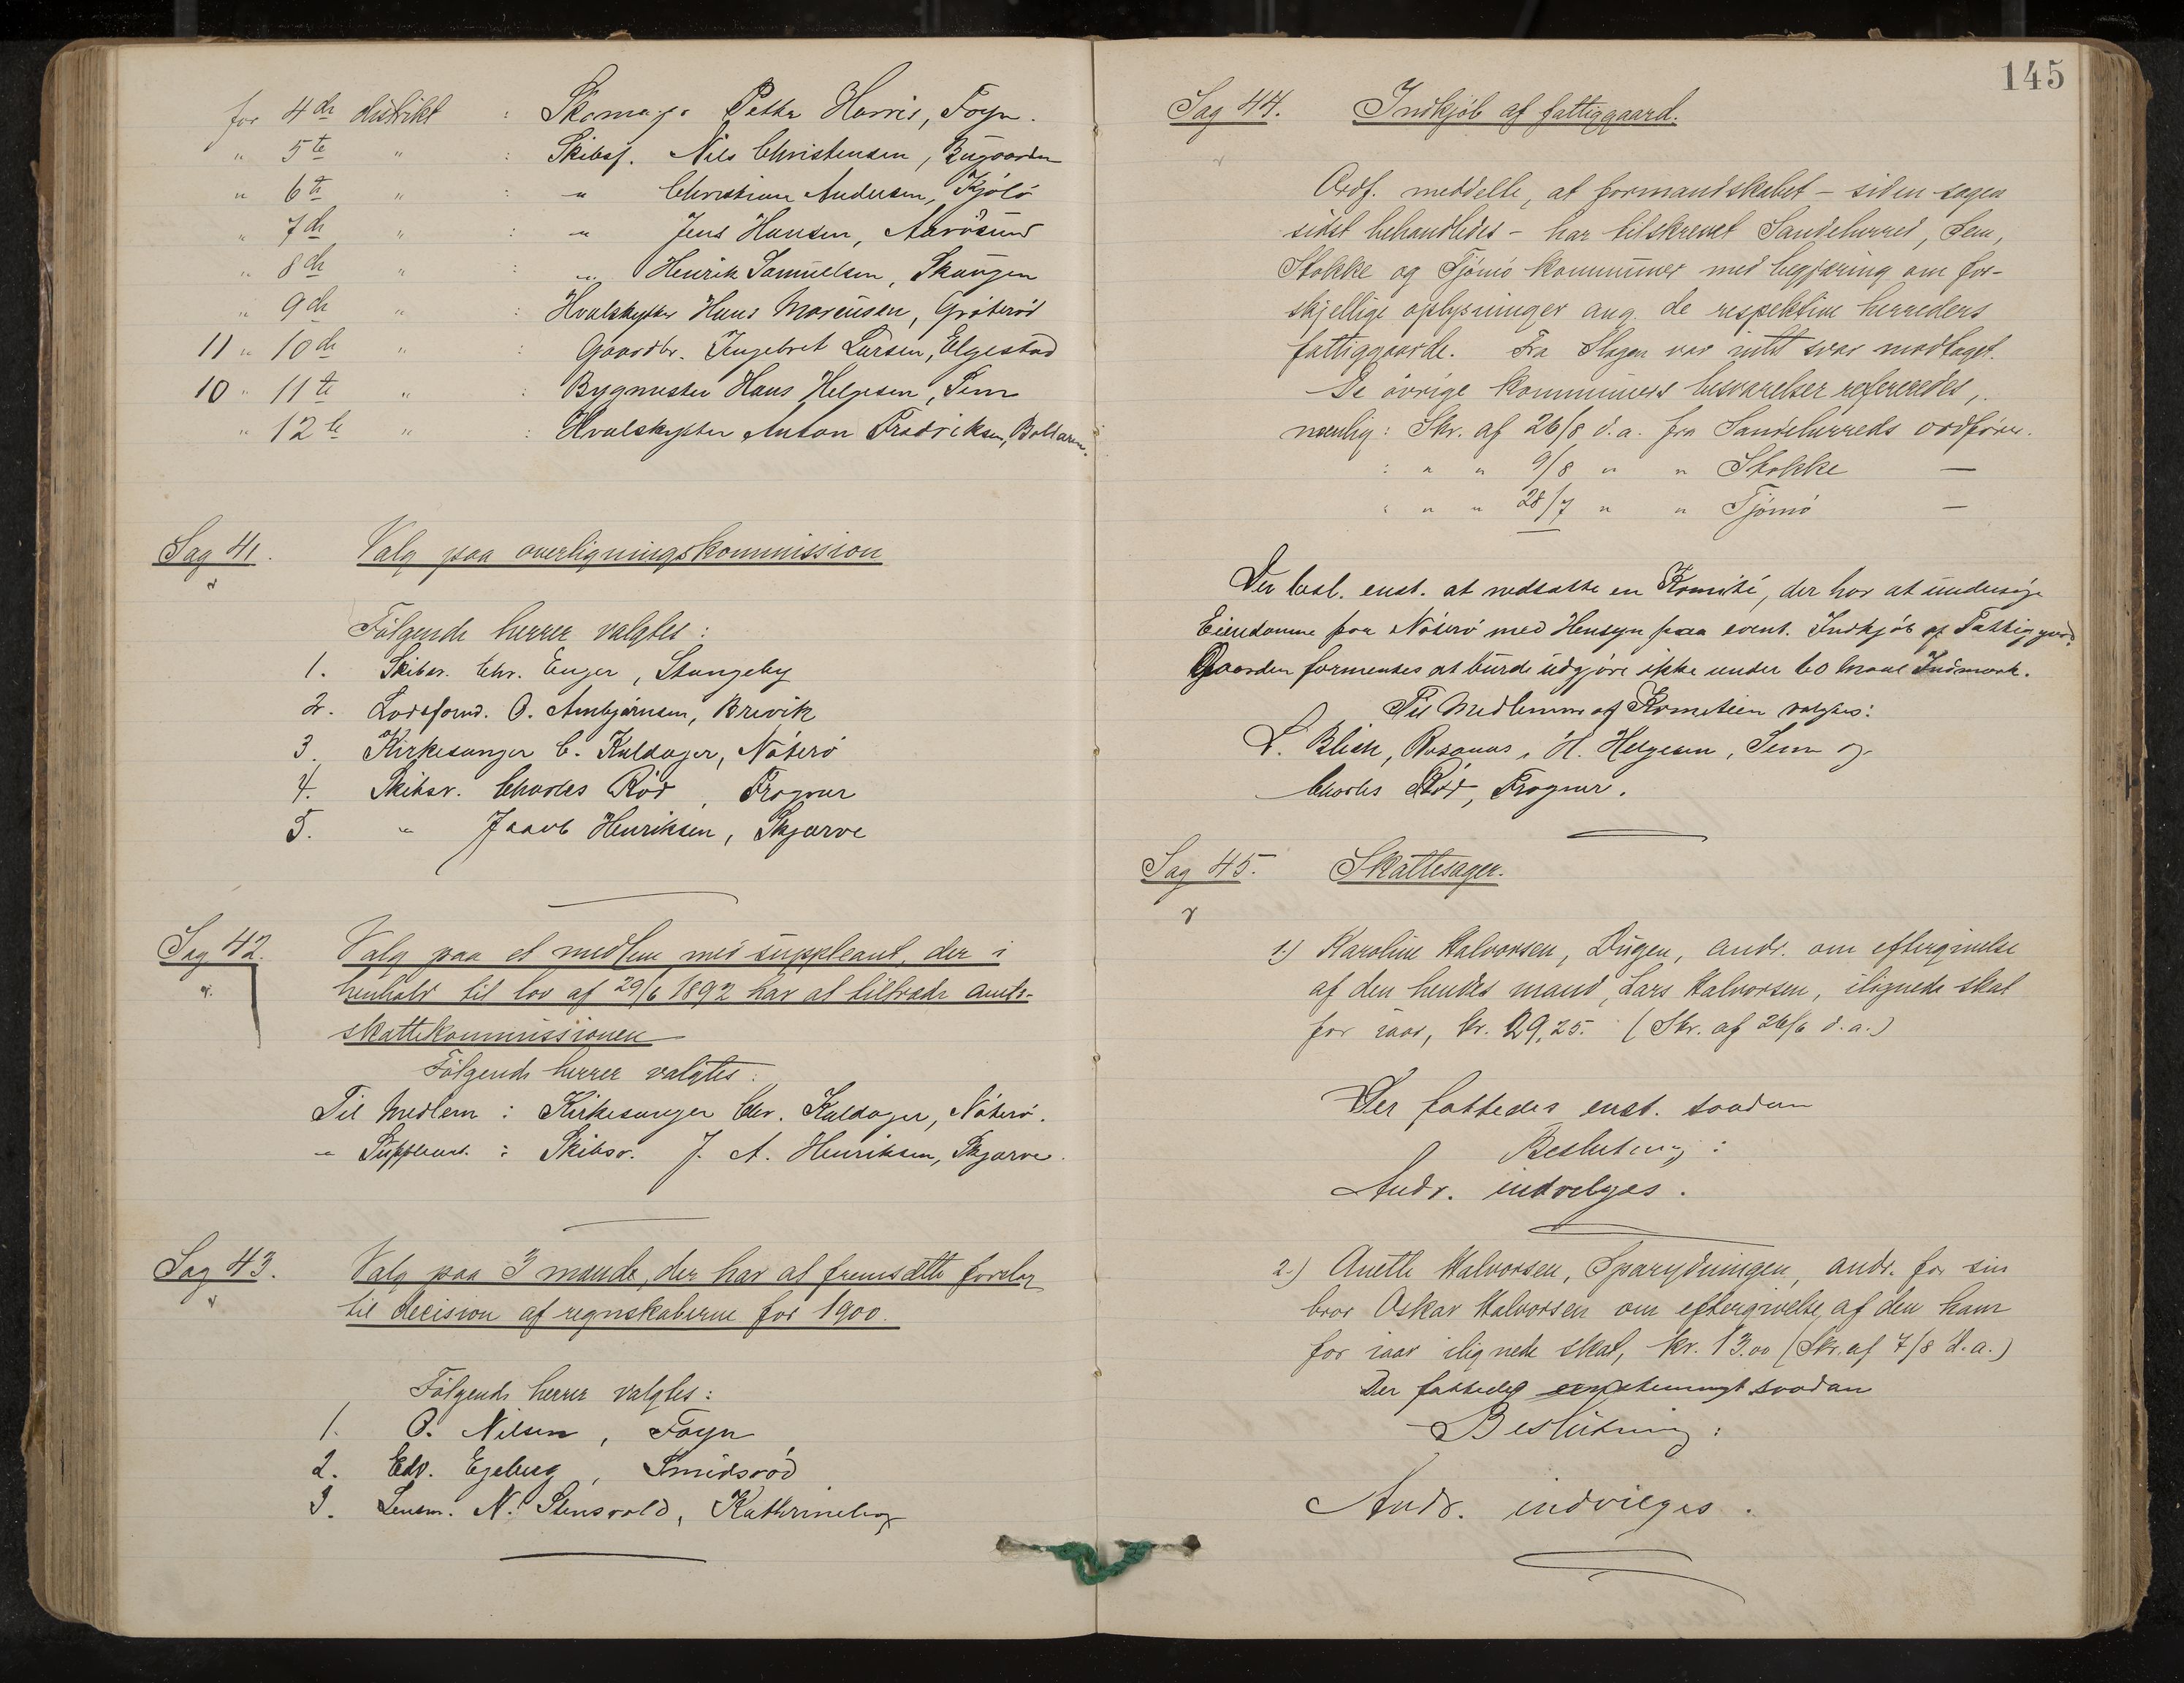 for 4de distrikt : Skomag. Petter Harris, Föyn.
" 5te " : Skibsf. Nils Christensen, Bugaarden
" 6te " : " Christian Andersen, Kjölö
" 7de " : " Jens Hansen, Aarösund
" 8de " : " Henrik Samuelsen, Skaugen
" 9de " : Hvalskytter Hans Marcusen, Gröterød
11 " 10de " : Gaardbr. Ingebret Larsen, Elgestad
10 " 11te " : Bygmester Hans Helgesen, Sem
" 12te " : Hvalskytter Anton Fredriksen, Bollaren.
Sag 41. Valg paa overligningskommission
Fölgende herrer valgtes:
1. Skibsr. Chr. Enger, Stangeby
2. Lodsformd. O. Ambjörnsen, Brevik
3. Kirkesanger C. Kaldager, Nöterö
4. Skibsr. Charles Röd, Frogner
5. " Jacob Henriksen, Skjærve
Sag 42. Valg paa et medlem med suppleant, der i
henhold til lov af 29/6 1892 har at tiltræde amts-
skattekommissionen
Fölgende herrer valgtes:
Til Medlem : Kirkesanger Chr. Kaldager, Nöterö.
" Suppleant : Skibsr. J. A. Henriksen, Skjærve.
Sag 43. Valg paa 3 mænd, der har at fremsætte forslag
til decision af regnskaberne for 1900.
Fölgende herrer valgtes:
1. O. Nilsen, Föyn
2. Edv. Egeberg, Smidsröd
3. Lensm. N. Stensvold, Kathrineborg
145
Sag 44. Indkjöb af fattiggaard.
Ordf. meddelte, at formandskabet – siden sagen
sidst behandledes – har tilskrevet Sandeherred, Sem,
Stokke og Tjömö kommuner med begjæring om for-
skjellige oplysninger ang. de respektive herreders
fattiggaarde. Fra Slagen var intet svar modtaget.
De övrige kommuners besvarelser refereredes,
nemlig: Skr. af 26/8 d.a. fra Sandeherreds ordförer.
: " " 9/8 " " Stokke —
" " " 28/7 " " Tjömö —
Der besl. enst. at nedsætte en Komité, der har at undersöge
Eiendomme paa Nöterö med Hensyn paa event. Indkjöb af Fattiggaard.
Gaarden formentes at burde udgjöre ikke under 60 Maal Indmark.
Til Medlemmer af Komiteen valgtes:
L. Blich, Rosanes, H. Helgesen, Sem og
Charles Röd, Frogner.
Sag 45. Skattesager.
1.) Karoline Halvorsen, Dugen, andr. om eftergivelse
af den hendes mand, Lars Halvorsen, ilignede skat
for iaar, kr. 29,25. (Skr. af 26/6 d.a.)
Der fattedes enst. saadan
Beslutning:
Andr. indvilges.
2.) Anette Halvorsen, Sparrydningen, andr. for sin
bror Oskar Halvorsen om eftergivelse af den ham
for iaar ilignede skat, kr. 13.00 (Skr. af 7/8 d.a.)
Der fattedes enstemmigt saadan
Beslutning:
Andr. indvilges.